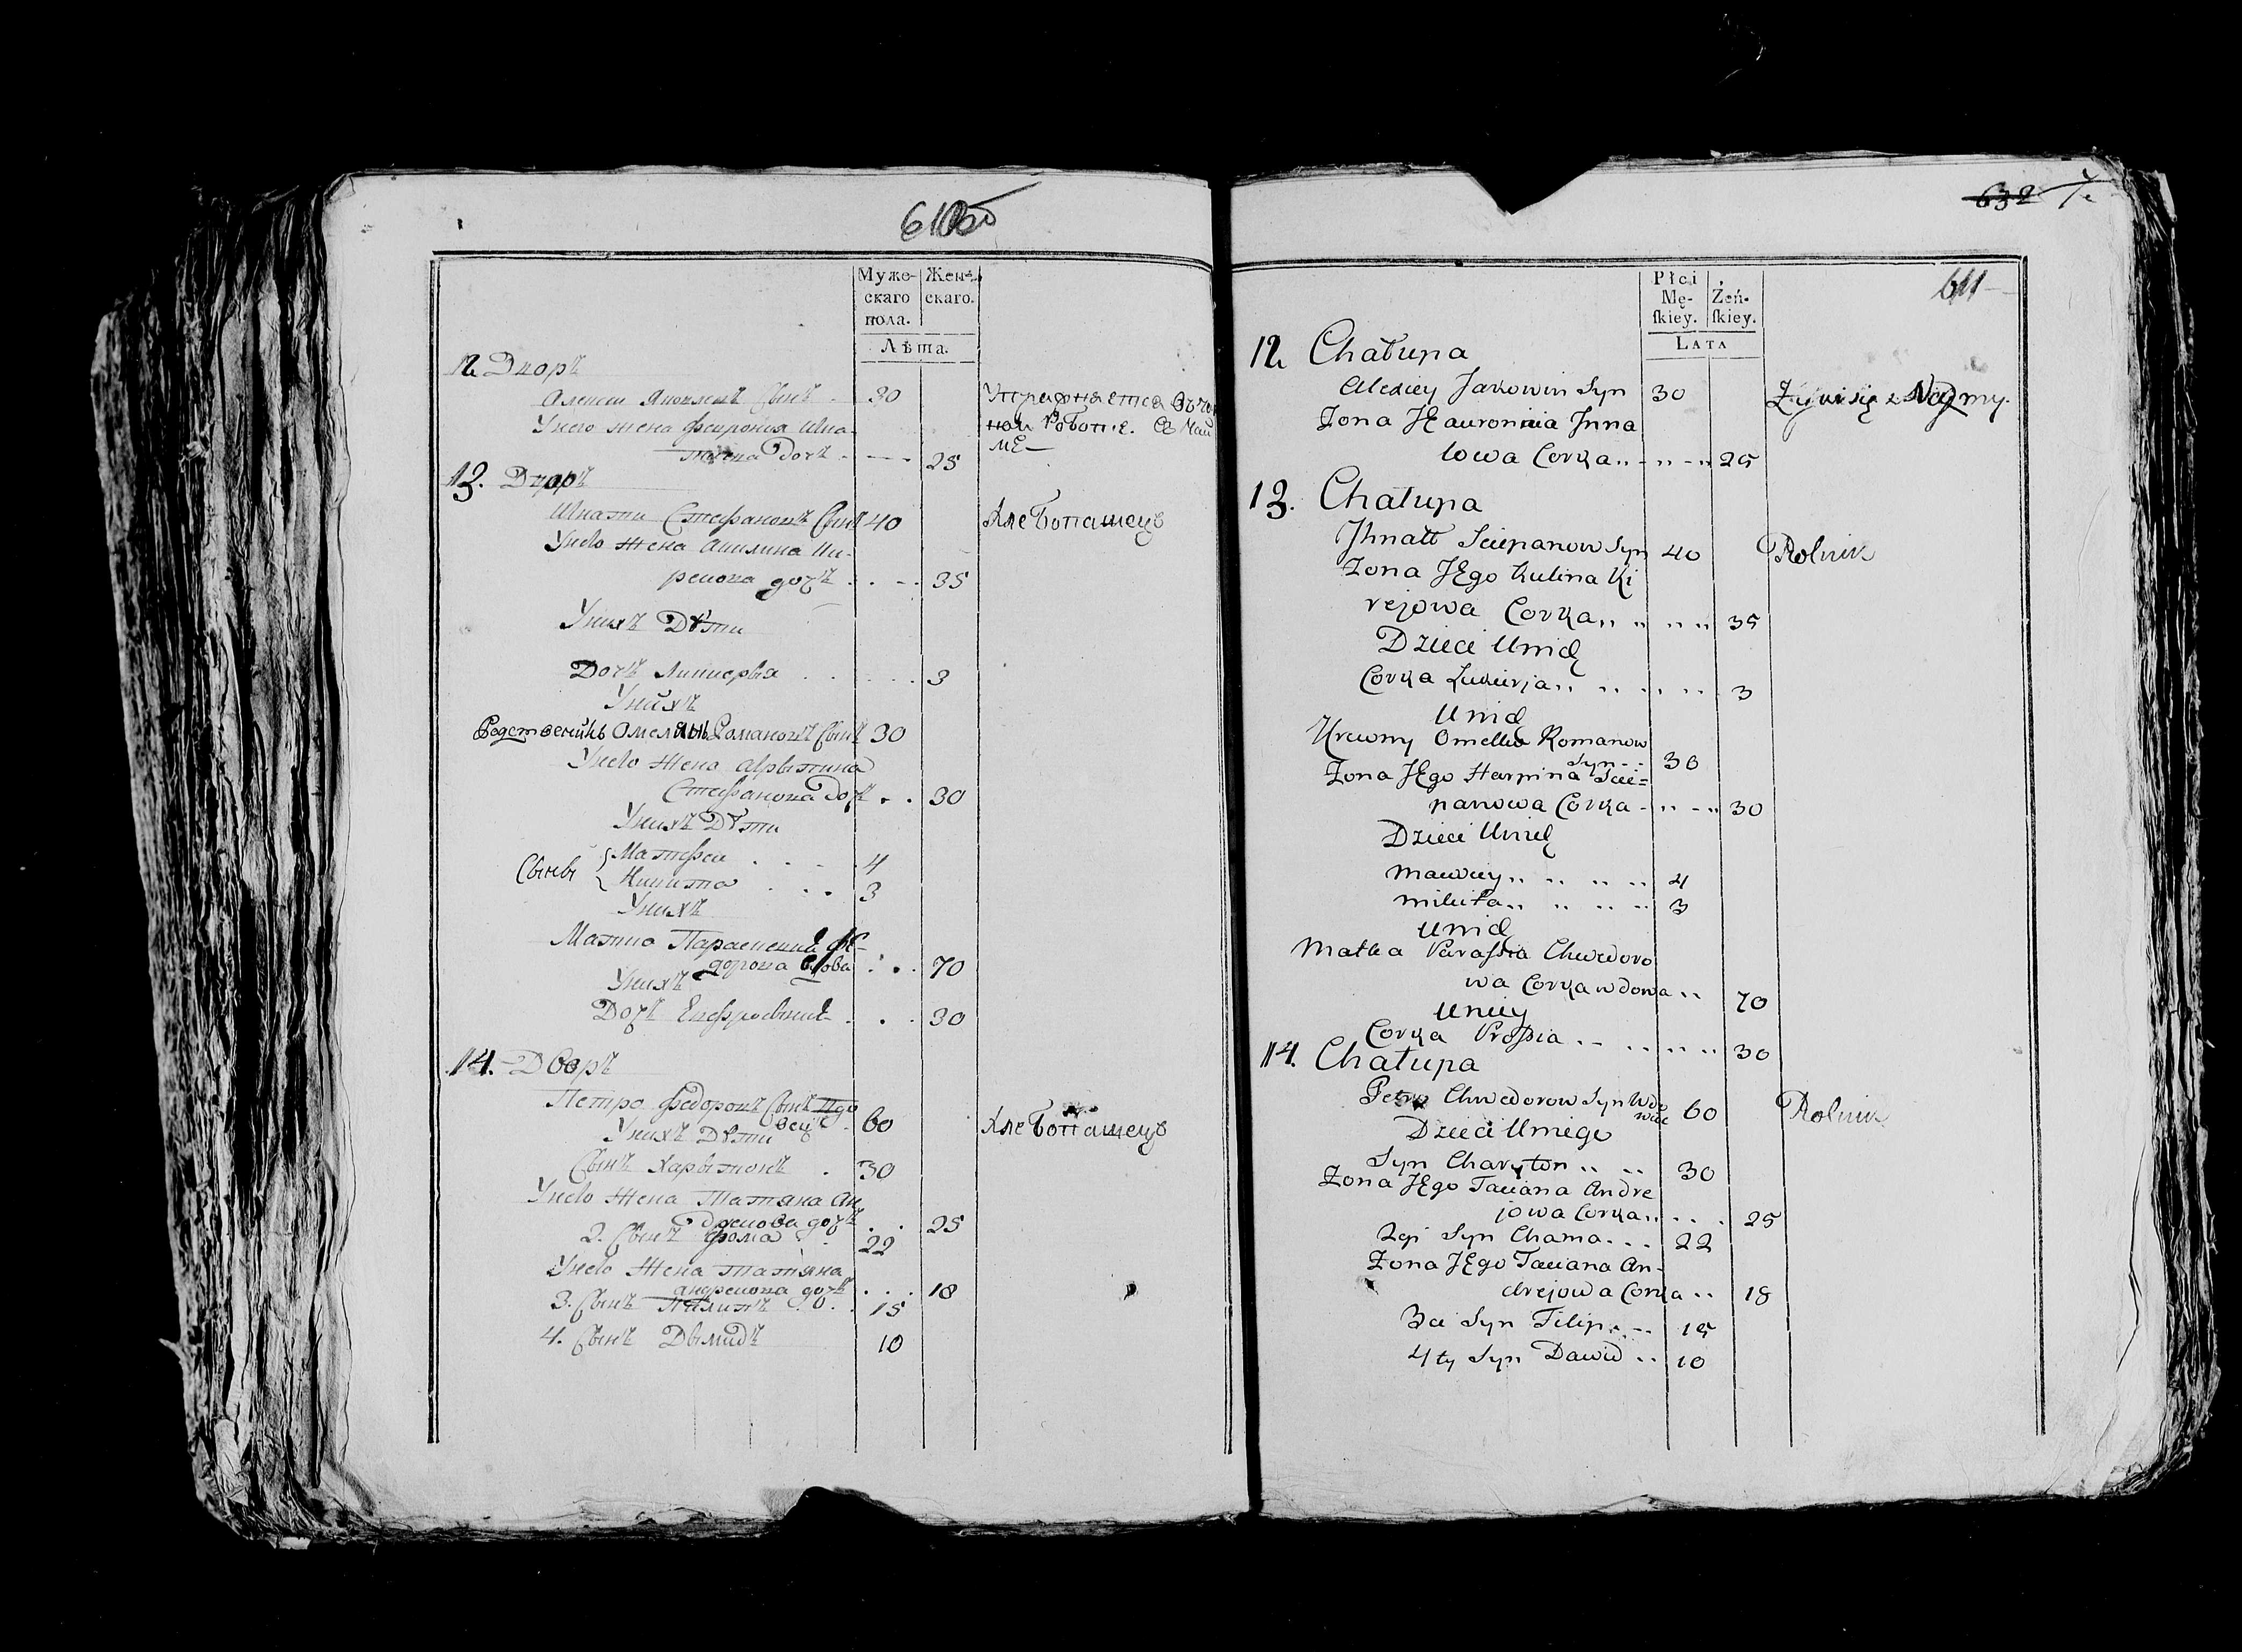 610об
Муже-
скаго
пола.
Жен-
скаго.
Лѣта.
12 Дворъ
Алексей Яковлевъ Сынъ . 30
Унего жена Феврония Игна-
това Дочъ . - - - 25
Упражняется Въ
ной Роботе.
13. Дворъ
Игнати Стефановъ Сынъ 40 Хлебопашецъ
Унево Жена Акилина Ки-
реиова дочъ . . - . 35
Унихъ Дѣти
Дочъ Ликиерья . . . . . 3
Унихъ
Родственикъ Омелянъ Романовъ Сынъ 30
Унево Жена
Стефанова Дочъ . . 30
Унихъ Дѣти
Сыны { Матфеи . . - 4
Никита . . . 3
Унихъ
Матка Параскеви Фе-
дорова вдова . . . 70
Унихъ
Дочъ . . . 30
14. Дворъ
Петро Федоровъ Сынъ Вдо
вец . 60 Хлебопашецъ
Унихъ Дѣти
Сынъ Харытонъ . 30
Унево Жена Татяна Ан
дреиова дочъ . . 25
2. Сынъ Фома . . 22
Унево Жена татяна
андреиова дочъ . . . 18
3. Сынъ Пилипъ . . . 15
4. Сынъ Дымидъ 10
632
611
Płci
Mę-
ſkiey.
Żeń-
ſkiey.
LATA
12 Chałupa
Alexiey Jakowin Syn 30
Żona JEgo Hauronia Jhna
towa Corka 25
13. Chałupa
Jhnatt Sciepanow Syn 40 Rolnik
Żona JEgo Kulina Ki
rejowa Corka 35
Dzieci Unich
Corka Łukierja 3
Unich
Krewny Omelko Romanow
Syn 30
Żona JEgo Harpina Scie=
panowa Corka 30
Dzieci Unich
Maciey 4
Mikita 3
Unich
Matka Parasia Chwedoro
wa Corka wdowa 70
Uniey
Corka Prosia 30
14. Chałupa
Petro Chwedorow Syn Wdo
wiec 60 Rolnik
Dzieci Uniego
Syn Charyton 30
Żona JEgo Taciana Andre
jowa Corka 25
2gi Syn Chama 22
Żona JEgo Taciana An-
drejowa Corka 18
3ci Syn Filip 15
4ty Syn Dawid 10